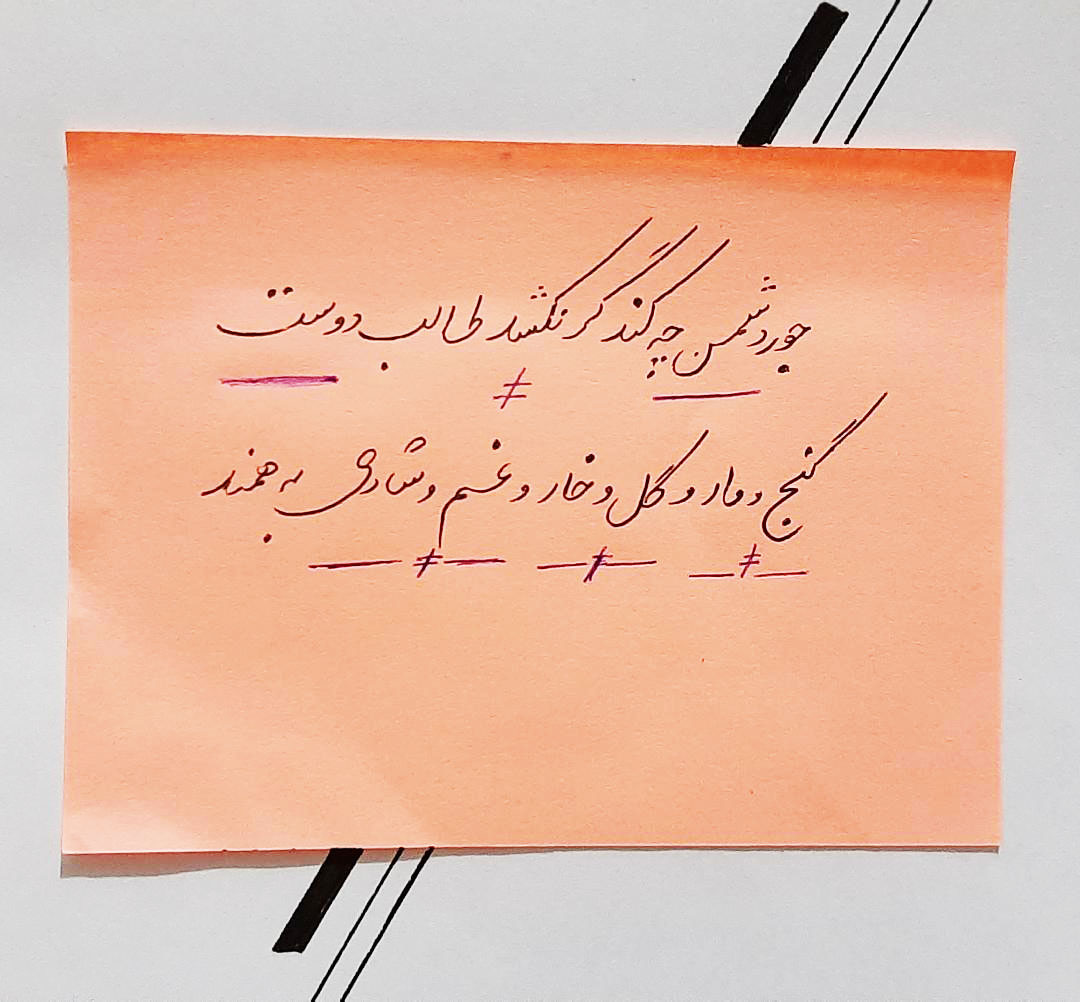 جور دشمن چه کند گر نکشد طالب دوست
≠
گنج و مار و گل و خار و غم و شادی به همند
≠ ≠ ≠